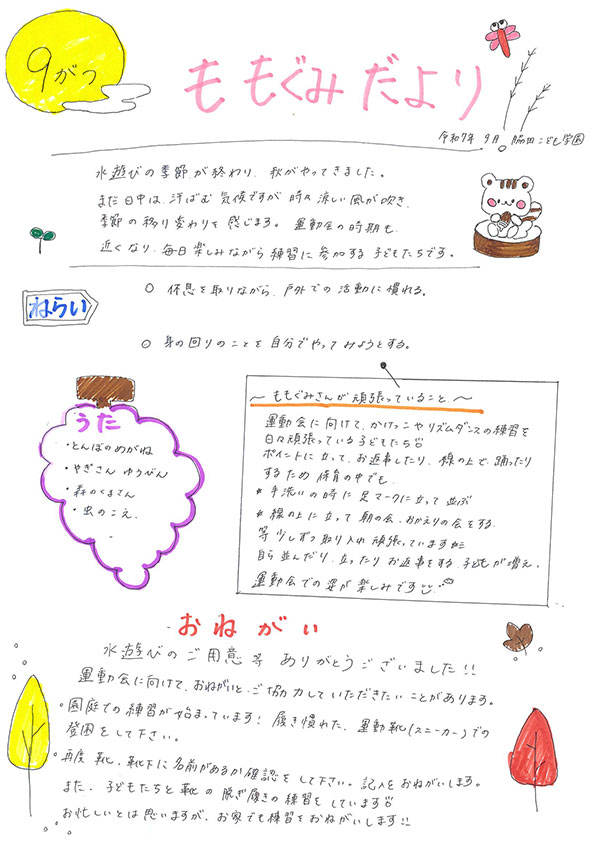 9がつ
ももぐみだより
令和7年 9月 脇田こども学園
水遊びの季節が終わり、秋がやってきました。
まだ日中は、汗ばむ気候ですが時々涼しい風が吹き、
季節の移り変わりを感じます。運動会の時期も
近くなり、毎日楽しみながら練習に参加する子どもたちです。
ねらい
○ 休息を取りながら、戸外での活動に慣れる。
○ 身の回りのことを自分でやってみようとする。
うた
・とんぼのめがね
・やぎさんゆうびん
・森のくまさん
・虫のこえ
～ももぐみさんが頑張っていること～
運動会に向けて、かけっこやリズムダンスの練習を
日々頑張っている子どもたち
ポイントに立って、お返事したり、線の上で、踊ったり
するため保育の中でも、
* 手洗いの時に足マークに立って並ぶ
* 線の上に立って朝の会、おかえりの会をする
等少しずつ取り入れ頑張っています
自ら並んだり、立ったりお返事をする、子どもが増え、
運動会での姿が楽しみです
おねがい
水遊びのご用意等ありがとうございました!!
運動会に向けて、おねがいと、ご協力していただきたいことがあります。
・園庭での練習が始まっています！履き慣れた、運動靴(スニーカー)での
登園をして下さい。
・再度靴、靴下に名前があるか確認をして下さい。記入をおねがいします。
また、子どもたちと靴の脱ぎ履きの練習をしています
お忙しいとは思いますが、お家でも練習をおねがいします!!